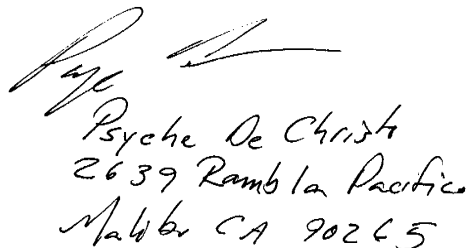 Psyche De Christo
2639 Rambla Pacifico
Malibu CA 90265